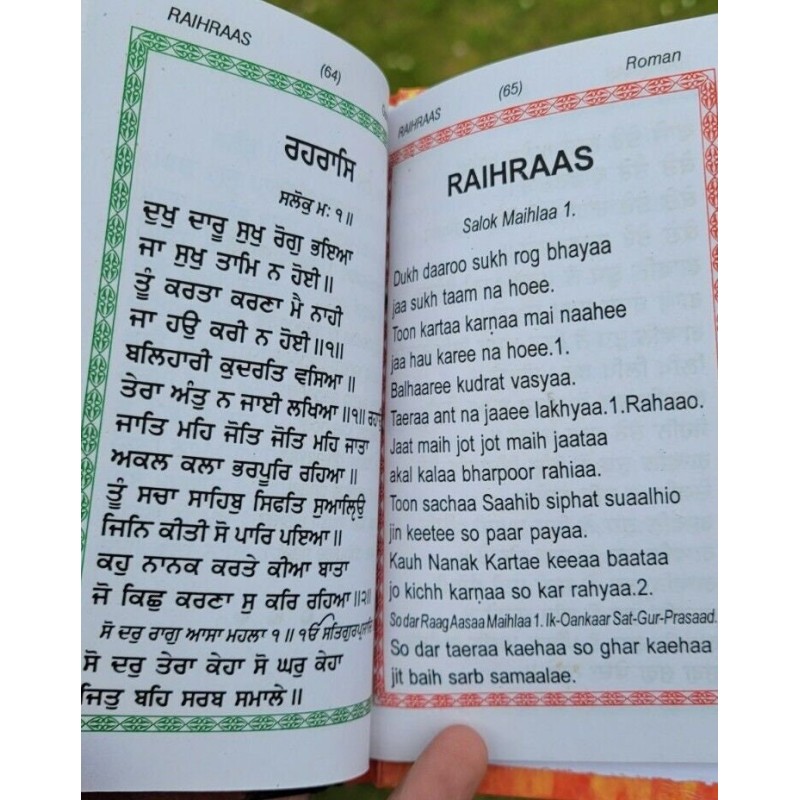 RAIHRAAS
(64)
ਰਹਰਾਸਿ
ਸਲੋਕੁ ਮਃ ੧॥
ਦੁਖੁ ਦਾਰੂ ਸੁਖੁ ਰੋਗੁ ਭਇਆ
ਜਾ ਸੁਖੁ ਤਾਮਿ ਨ ਹੋਈ॥
ਤੂੰ ਕਰਤਾ ਕਰਣਾ ਮੈ ਨਾਹੀ
ਜਾ ਹਉ ਕਰੀ ਨ ਹੋਈ॥੧॥
ਬਲਿਹਾਰੀ ਕੁਦਰਤਿ ਵਸਿਆ॥
ਤੇਰਾ ਅੰਤੁ ਨ ਜਾਈ ਲਖਿਆ॥੧॥
ਜਾਤਿ ਮਹਿ ਜੋਤਿ ਜੋਤਿ ਮਹਿ ਜਾਤਾ
ਅਕਲ ਕਲਾ ਭਰਪੂਰਿ ਰਹਿਆ॥
ਤੂੰ ਸਚਾ ਸਾਹਿਬੁ ਸਿਫਤਿ ਸੁਆਲ੍ਹਿਉ
ਜਿਨਿ ਕੀਤੀ ਸੋ ਪਾਰਿ ਪਇਆ॥
ਕਹੁ ਨਾਨਕ ਕਰਤੇ ਕੀਆ ਬਾਤਾ
ਜੋ ਕਿਛੁ ਕਰਣਾ ਸੁ ਕਰਿ ਰਹਿਆ॥੨॥
ਸੋ ਦਰੁ ਰਾਗੁ ਆਸਾ ਮਹਲਾ ੧॥ ੴ
ਸੋ ਦਰੁ ਤੇਰਾ ਕੇਹਾ ਸੋ ਘਰੁ ਕੇਹਾ
ਜਿਤੁ ਬਹਿ ਸਰਬ ਸਮਾਲੇ॥
RAIHRAAS
(65)
Roman
RAIHRAAS
Salok Maihlaa 1.
Dukh daaroo sukh rog bhayaa
jaa sukh taam na hoee.
Toon kartaa karṇaa mai naahee
jaa hau karee na hoee.1.
Balhaaree kudrat vasyaa.
Taeraa ant na jaaee lakhyaa.1.Rahaao.
Jaat maih jot jot maih jaataa
akal kalaa bharpoor rahiaa.
Toon sachaa Saahib siphat suaalhio
jin keetee so paar payaa.
Kauh Nanak Kartae keeaa baataa
jo kichh karṇaa so kar rahyaa.2.
So dar Raag Aasaa Maihlaa 1. Ik-Oankaar Sat-Gur-Prasaad.
So dar taeraa kaehaa so ghar kaehaa
jit baih sarb samaalae.